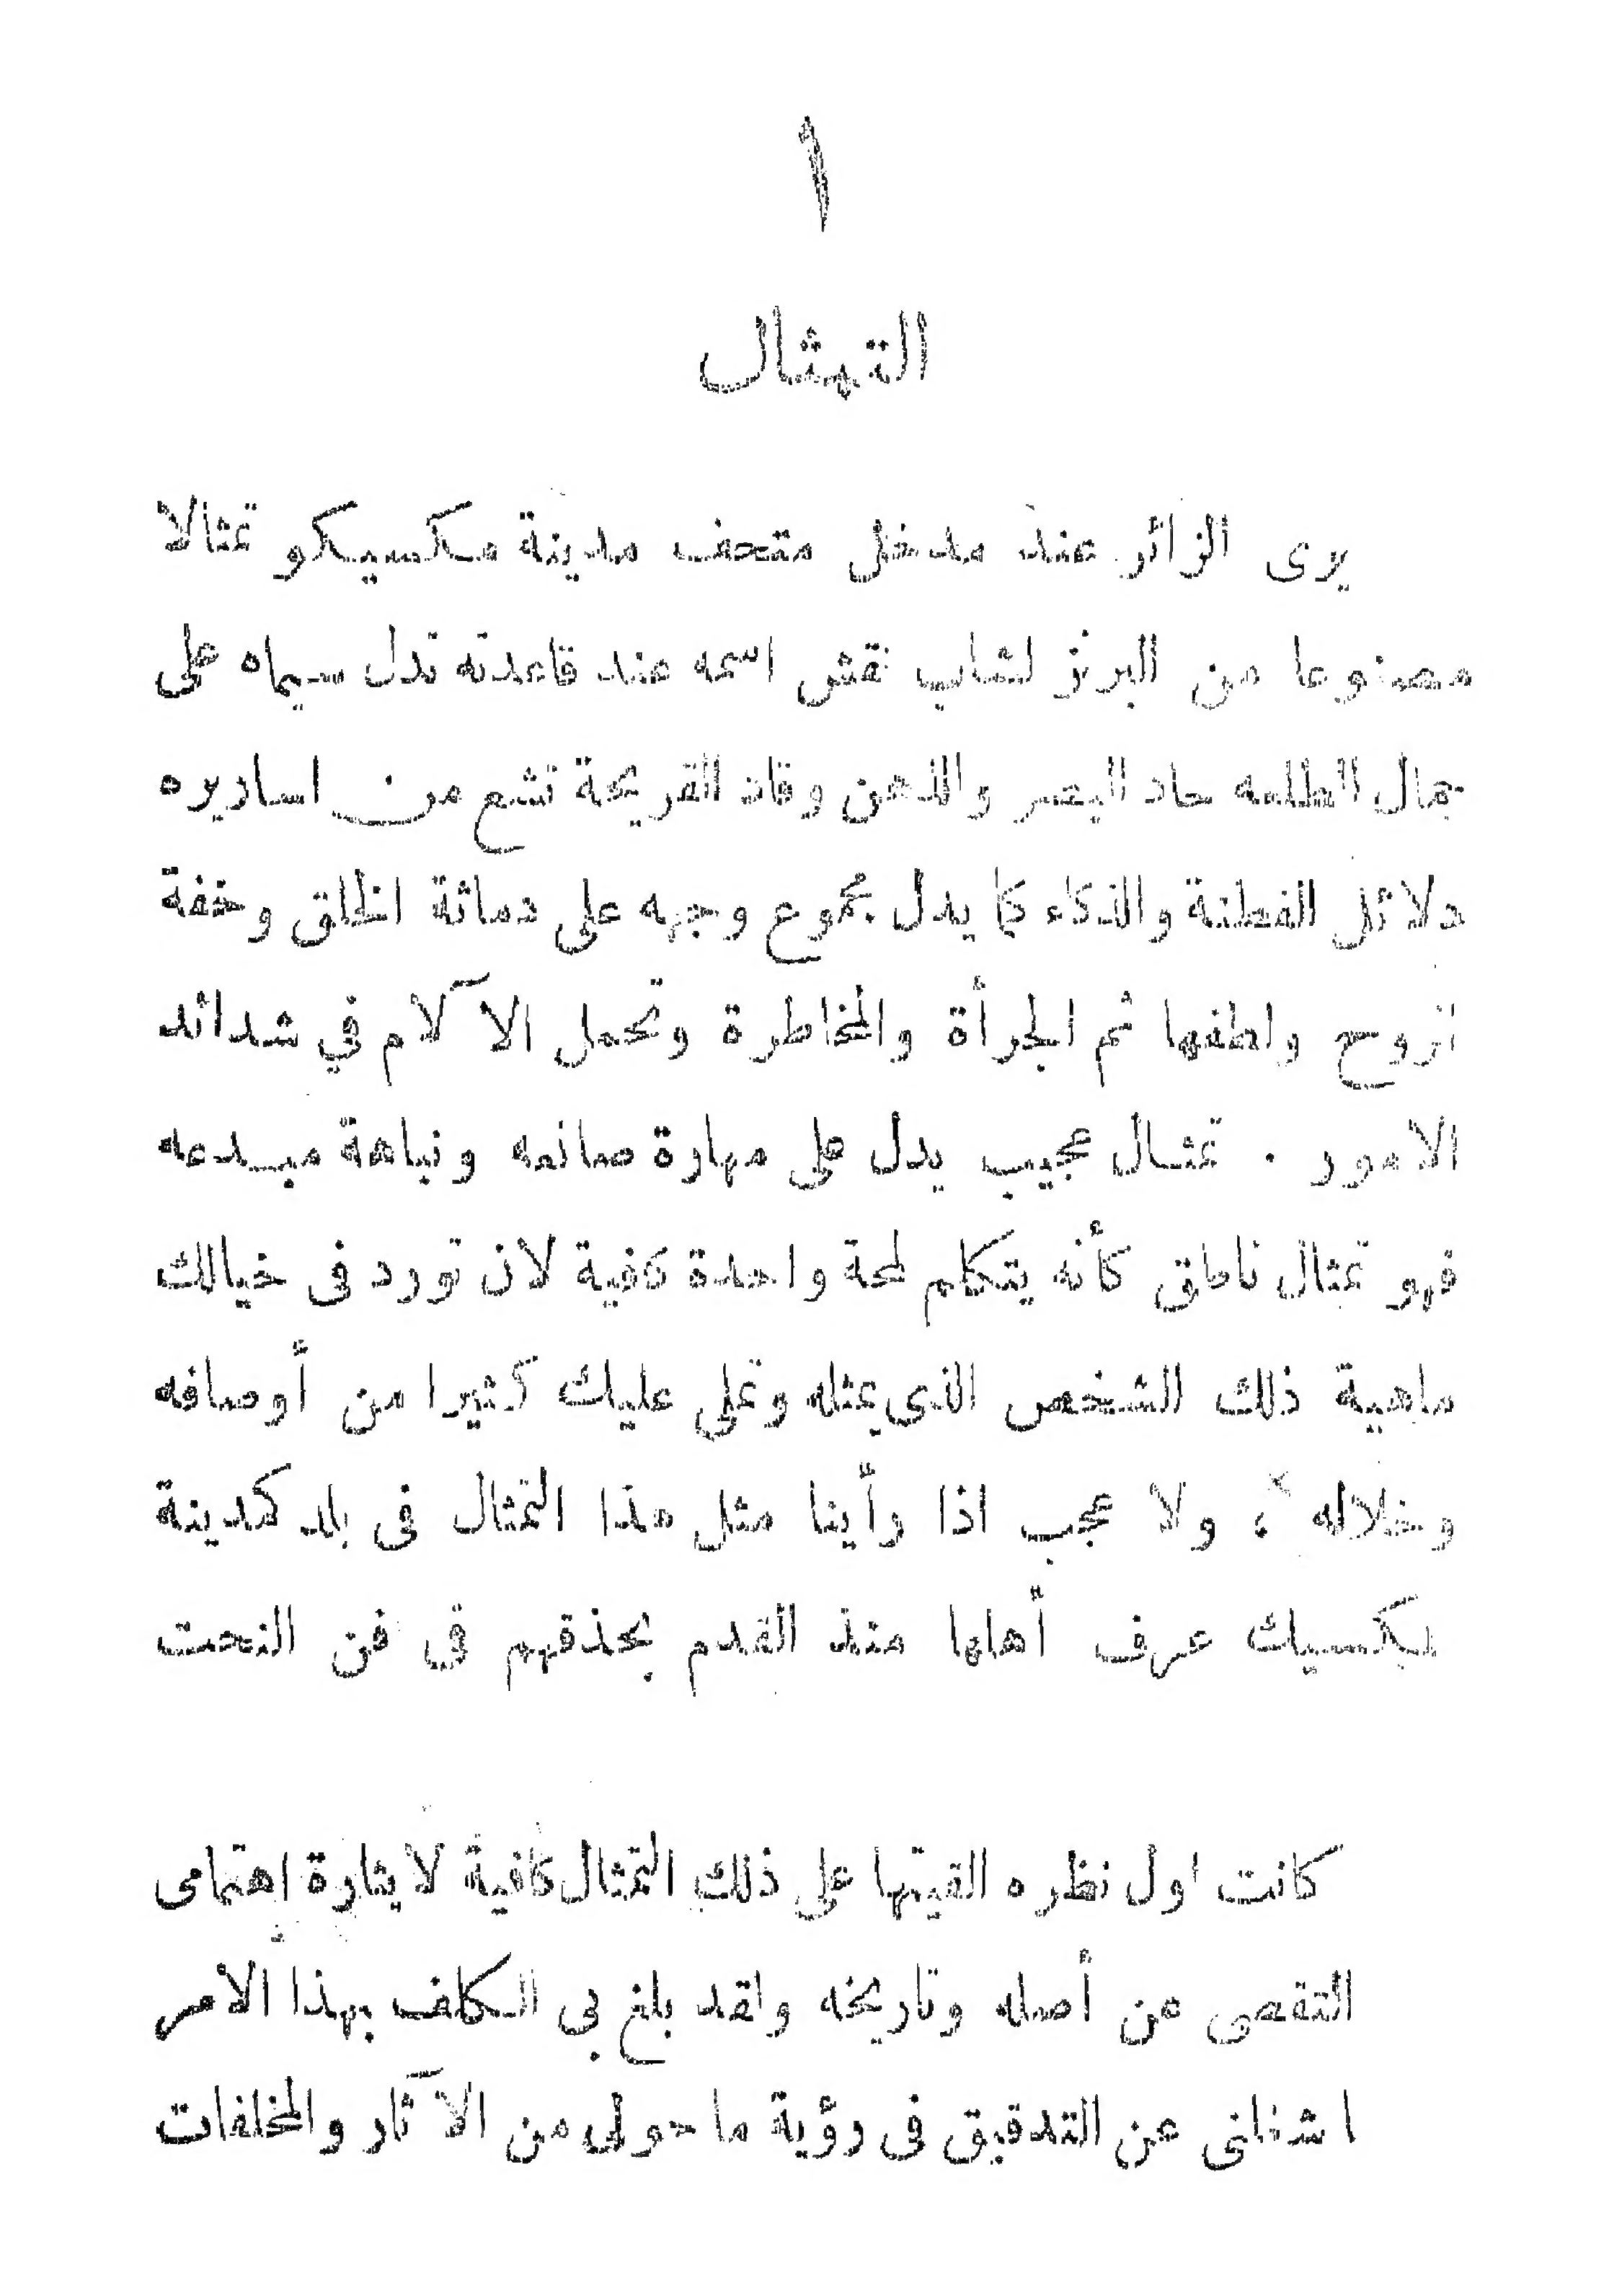 ١
التمثال
يرى الزائر عند مدخل متحف مدينة مكسيكو تمثالا
مصنوعا من البرنز لشاب نقش اسمه عند قاعدته تدل سيماه على
جمال الطلعه حاد البصر والذهن وقاد القريحة تشع من اساريره
دلائل الفطنة والذكاء كما يدل مجموع وجهه على دماثة الخلق وخفة
الروح ولطفها ثم الجرأة والمخاطرة وتحمل الآلام في شدائد
الامور . تمثال عجيب يدل على مهارة صانعه ونباهة مبدعه
فهو تمثال ناطق كأنه يتكلم لمحة واحدة كافية لان تورد فى خيالك
ماهية ذلك الشخص الذى يمثله وتملى عليك كثيرا من أوصافه
وخلاله ، ولا عجب اذا رأينا مثل هذا التمثال فى بلد كمدينة
مكسيك عرف أهلها منذ القدم بحذقهم فى فن النحت
كانت اول نظره القيتها على ذلك التمثال كافية لايثارة اهتمامى
التقصى عن أصله وتاريخه ولقد بلغ بى الكلف بهذا الامر
عن التدقيق فى رؤية ما حولى من الآثار والمخلفات